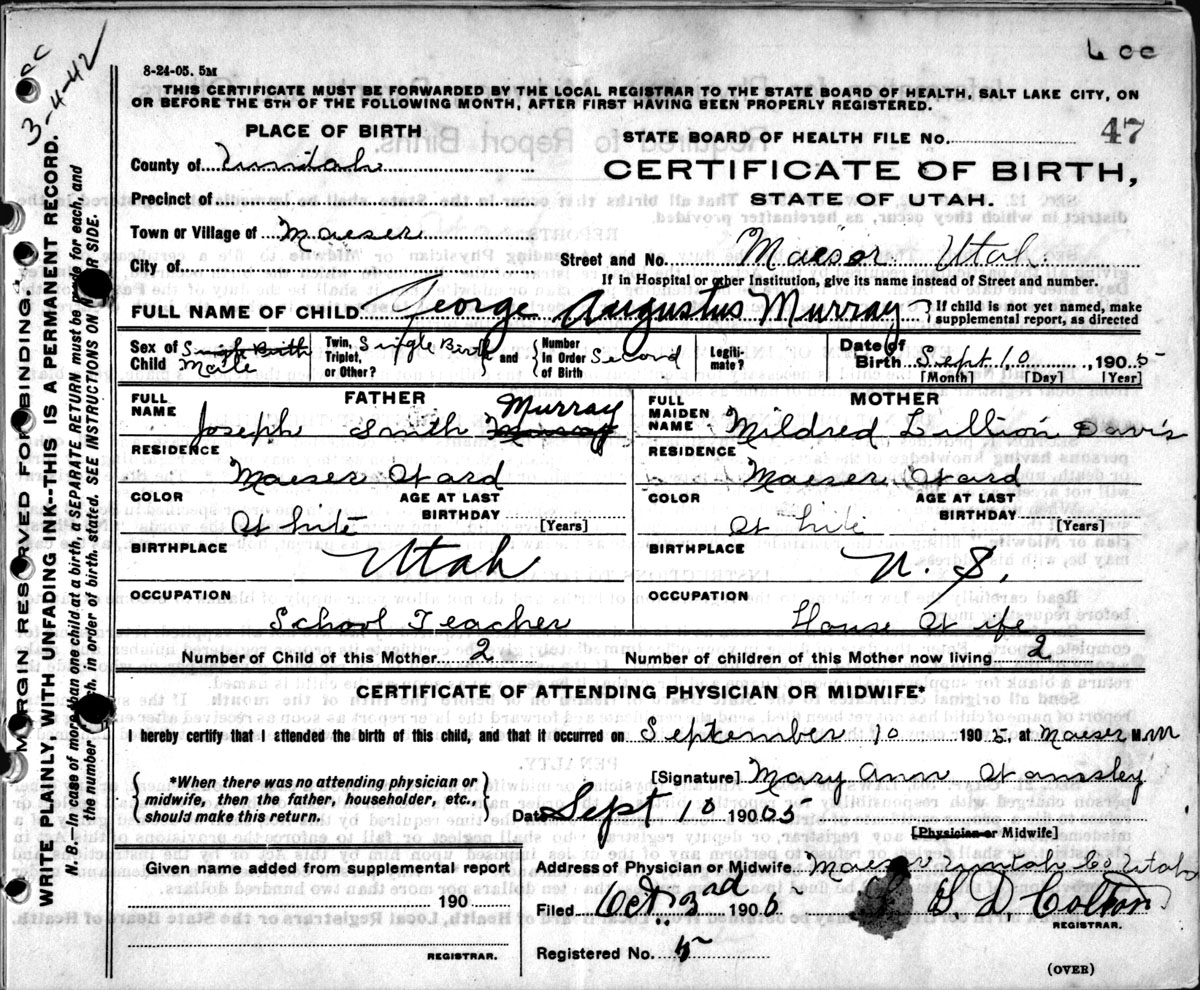 3-4-42
8-24-05. 5M
THIS CERTIFICATE MUST BE FORWARDED BY THE LOCAL REGISTRAR TO THE STATE BOARD OF HEALTH, SALT LAKE CITY, ON
OR BEFORE THE 5TH OF THE FOLLOWING MONTH, AFTER FIRST HAVING BEEN PROPERLY REGISTERED.
PLACE OF BIRTH
County of Uuintah
Precinct of
Town or Village of Maeser
City of
STATE BOARD OF HEALTH FILE No. 47
CERTIFICATE OF BIRTH,
STATE OF UTAH.
Street and No. Maeser Utah
If in Hospital or other Institution, give its name instead of Street and number.
FULL NAME OF CHILD George Augustus Murray { If child is not yet named, make
supplemental report, as directed
Sex of Child Single Birth Male
Twin, Triplet, or Other? Single Birth and { Number In Order of Birth Second
Legiti-mate?
Date of Birth Sept. 10 1905
[Month] [Day] [Year]
FATHER
FULL NAME Joseph Smith Murray Murray
RESIDENCE
Maeser Ward
COLOR
White
AGE AT LAST BIRTHDAY [Years]
BIRTHPLACE
Utah
OCCUPATION
School Teacher
MOTHER
FULL MAIDEN NAME Mildred Lillion Davis
RESIDENCE
Maeser Ward
COLOR
White
AGE AT LAST BIRTHDAY [Years]
BIRTHPLACE
U. S.
OCCUPATION
House Wife
Number of Child of this Mother 2 Number of children of this Mother now living 2
CERTIFICATE OF ATTENDING PHYSICIAN OR MIDWIFE*
I hereby certify that I attended the birth of this child, and that it occurred on September 10 1905, at Maeser M.
*When there was no attending physician or
midwife, then the father, householder, etc.,
should make this return.
[Signature] Mary Ann Wamsley
Date Sept 10 190 05
[Physician or Midwife]
Given name added from supplemental report
190
REGISTRAR.
Address of Physician or Midwife Maeser Uintah Co Utah
Filed Oct. 3rd 190
B. D. Colton
REGISTRAR.
Registered No. 5
(OVER)
MARGIN RESERVED FOR BINDING.
WRITE PLAINLY, WITH UNFADING INK--THIS IS A PERMANENT RECORD.
N. B. In case of more than one child at a birth, a SEPARATE RETURN must be made for each, and
the number of each, in order of birth, stated. SEE INSTRUCTIONS ON OTHER SIDE.